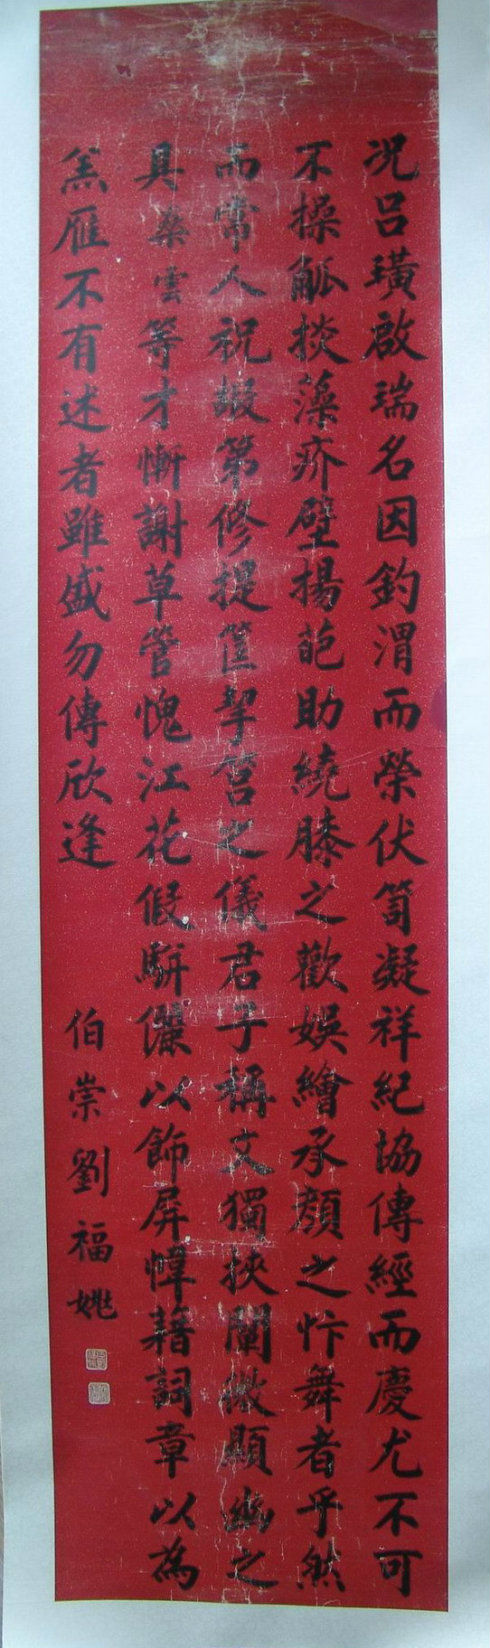 况呂璜啟瑞名因釣渭而榮伏笥凝祥紀協傳經而慶尤不可
不操觚掞藻疥壁揚葩助繞膝之歡娛繪承顏之忭舞者乎然
而常人祝嘏第修提筐挈筥之儀君子稱文獨挾闡微顯幽之
具染雲等才慚謝草管愧江花假駢儷以飾屏幛藉詞章以為
羔雁不有述者雖盛勿傳欣逢
伯崇劉福姚